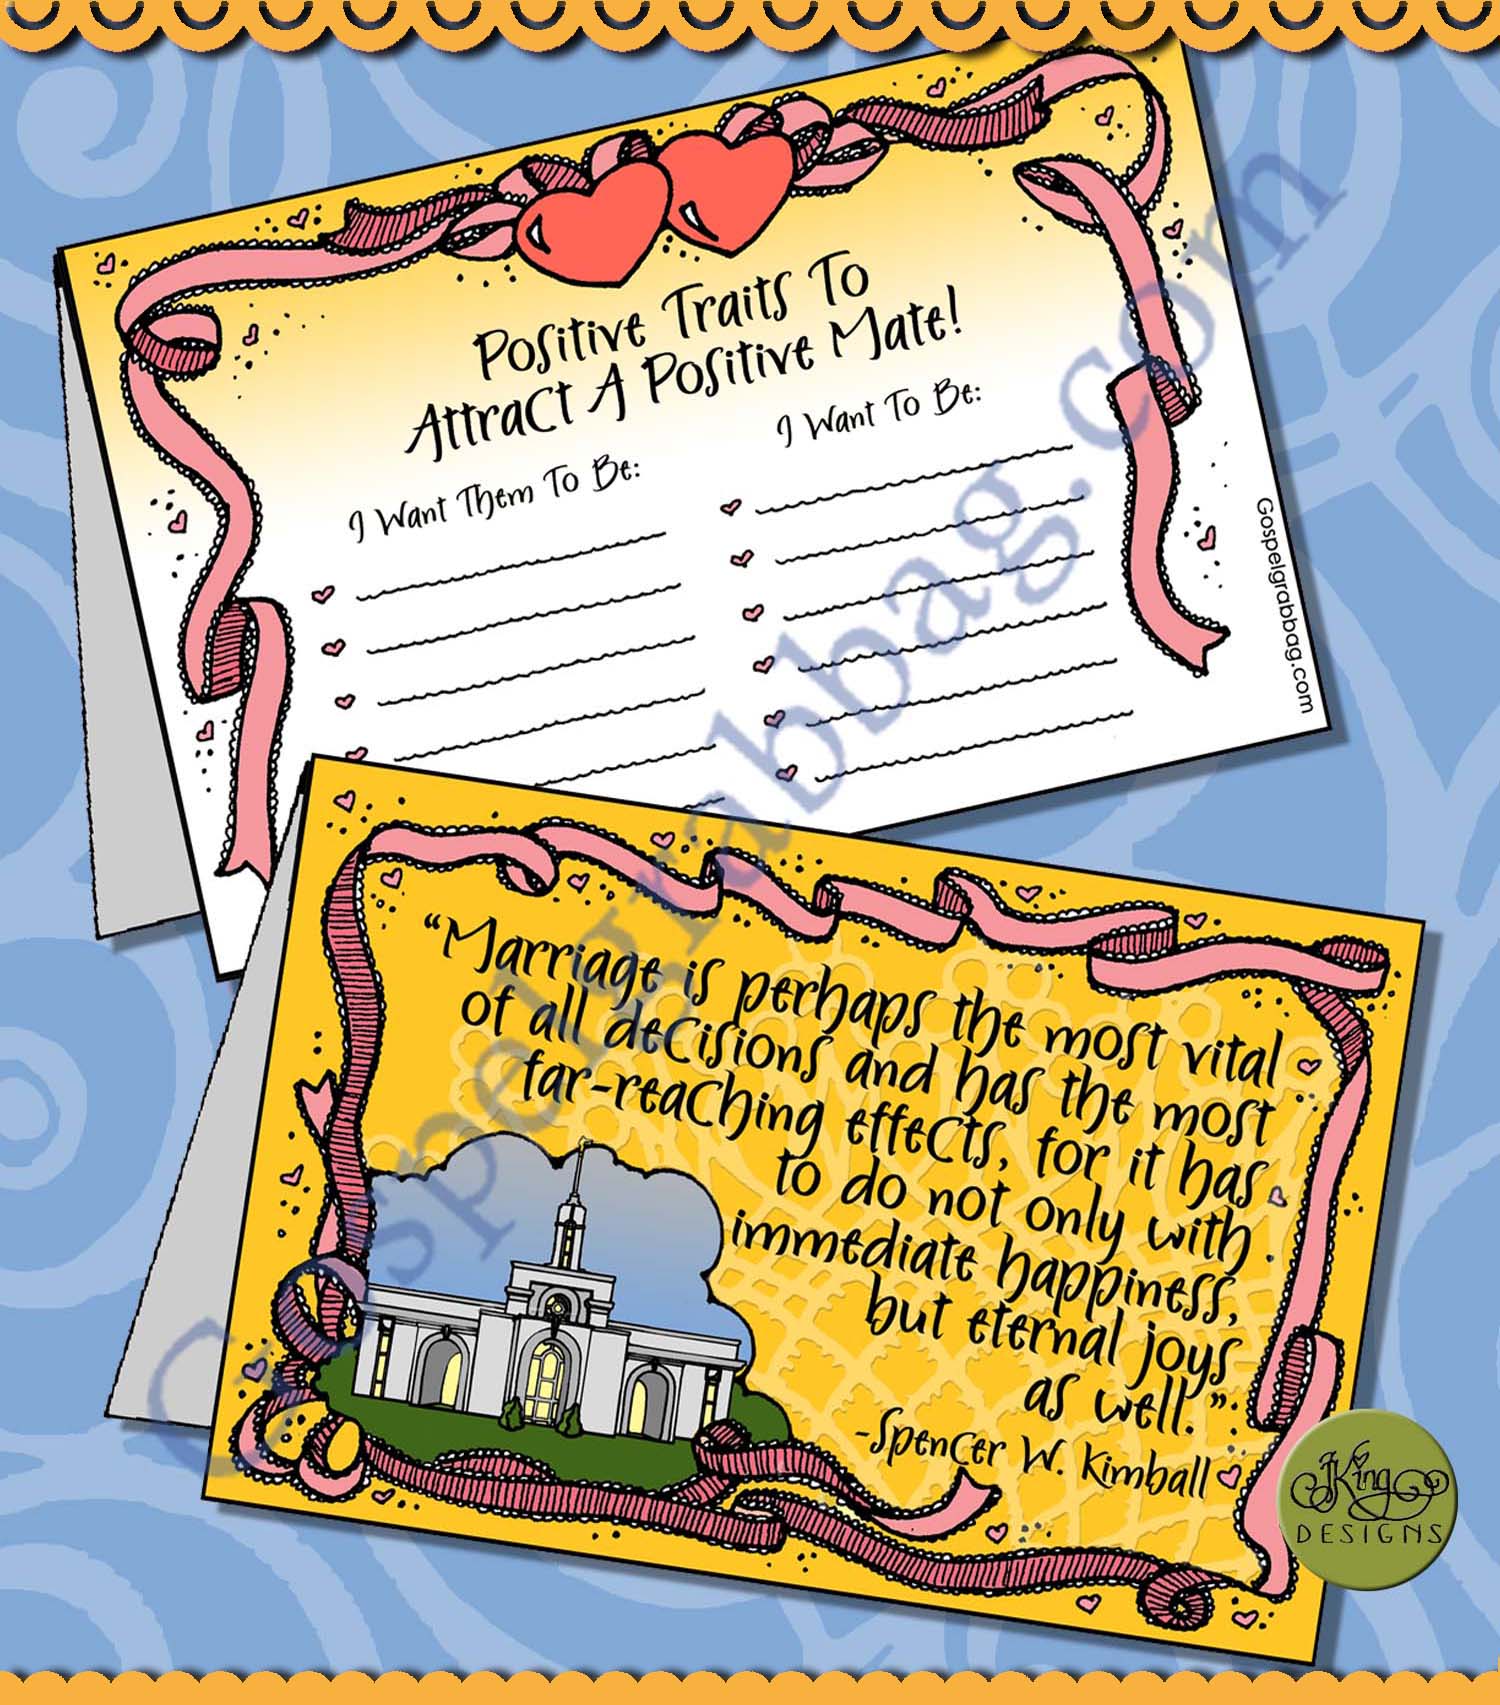 Positive Traits To
Attract A Positive Mate!
I Want Them To Be:
I Want To Be:
Gospelgrabbag.com
Gospelgrabbag.com
“Marriage is perhaps the most vital
of all decisions and has the most
far-reaching effects, for it has
to do not only with
immediate happiness,
but eternal joys
as well.”
-Spencer W. Kimball
JKing
DESIGNS